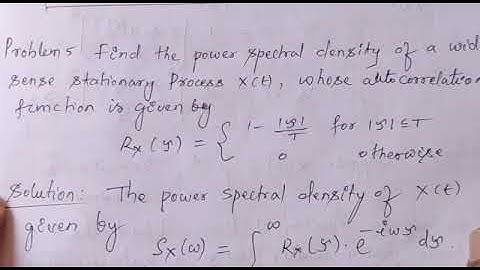 Problem 5 Find the power spectral density of a wid
sense stationary Process X(t), whose autocorrelation
function is given by
Rx(τ) = { 1 - |τ|/T for |τ| ≤ T
0 otherwise
Solution: The power spectral density of X(t)
given by
Sx(ω) = ∫ ∞ Rx(τ). e^-iωτ dτ.